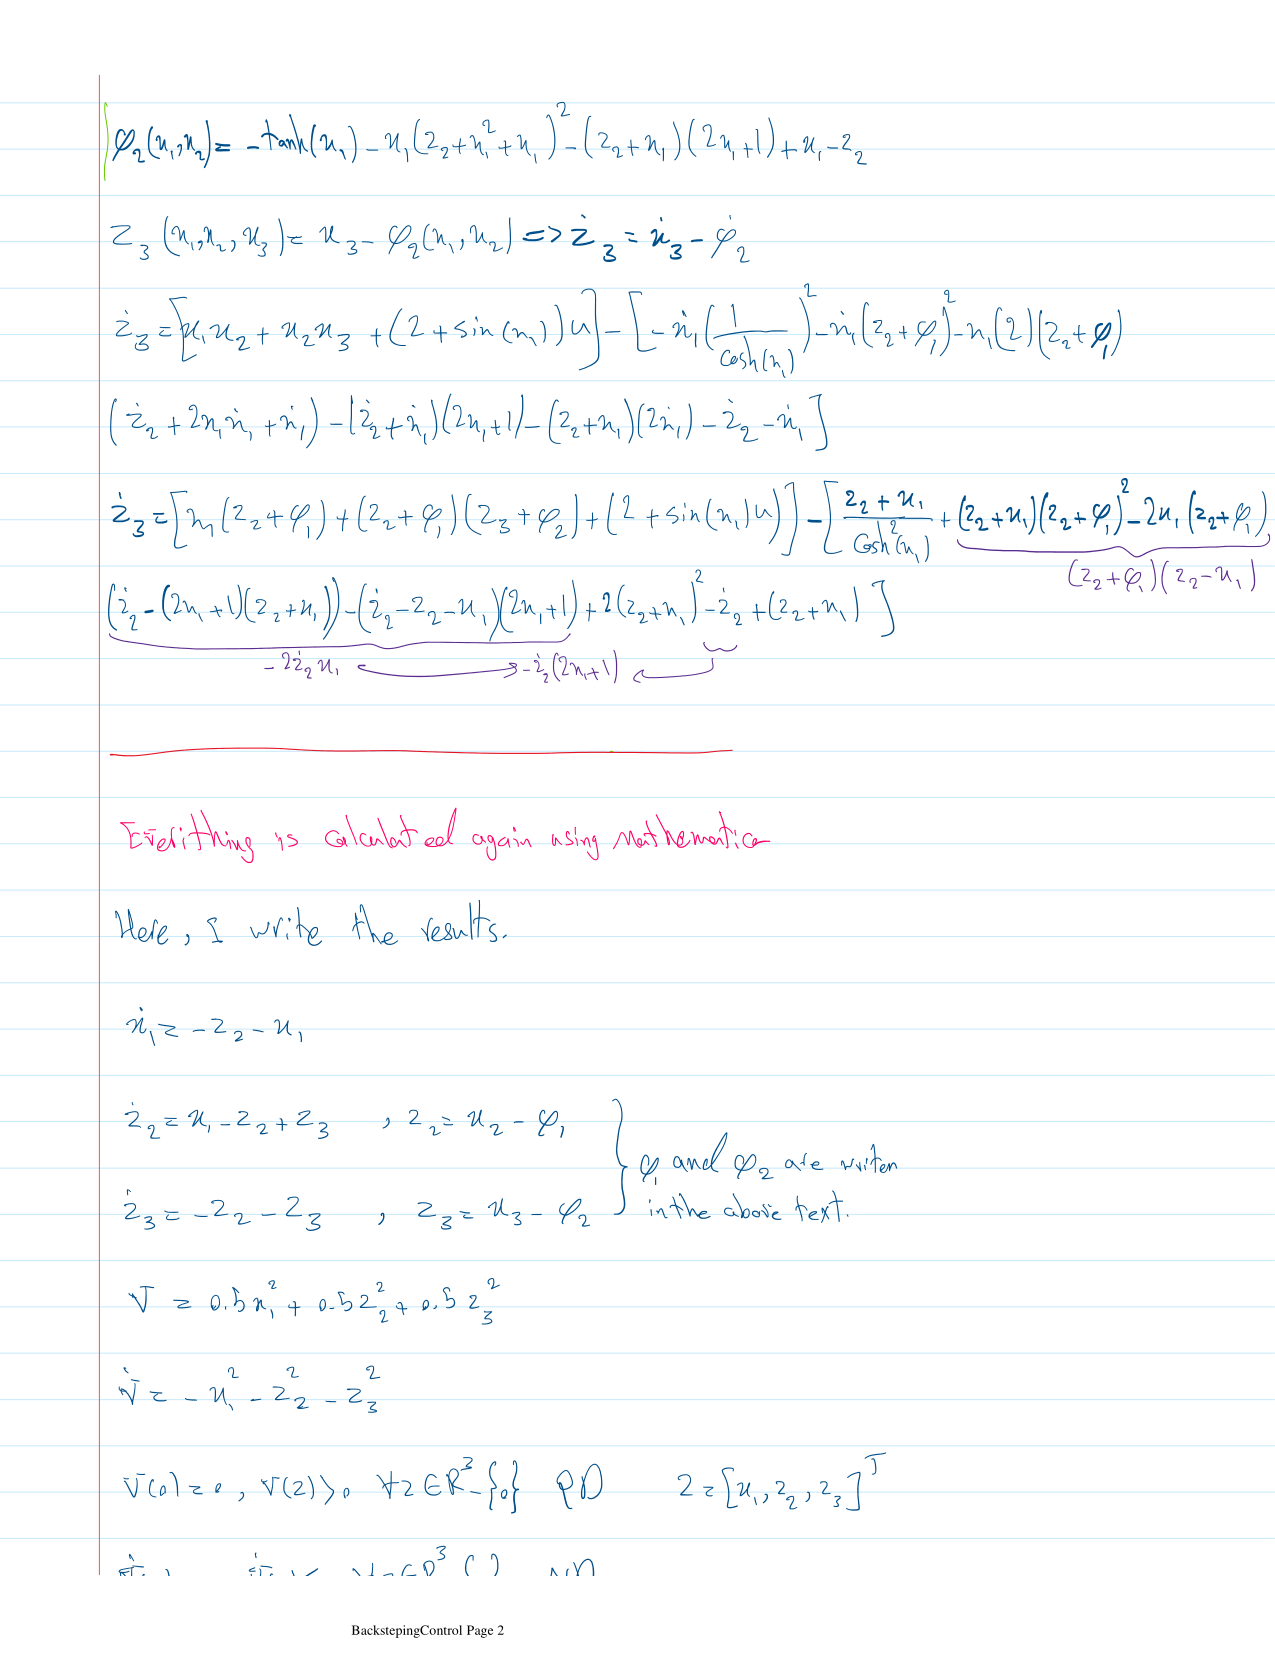 φ₂(x₁,x₂) = -tanh(x₁) - x₁(z₂+x₁²+x₁)² - (z₂+x₁)(2x₁+1) + x₁ - z₂
z₃(x₁,x₂,x₃) = x₃ - φ₂(x₁,x₂) => ż₃ = ẋ₃ - φ̇₂
ż₃ = [x₁x₂ + x₂x₃ + (2+sin(x₁))u] - [-ẋ₁(1/cosh(x₁))² - ẋ₁(z₂+φ₁)² - x₁(2)(z₂+φ₁)
(ż₂ + 2x₁ẋ₁ + ẋ₁) - (ż₂+ẋ₁)(2x₁+1) - (z₂+x₁)(2ẋ₁) - ż₂ - ẋ₁]
ż₃ = [x₁(z₂+φ₁) + (z₂+φ₁)(z₃+φ₂) + (2+sin(x₁)u)] - [(z₂+x₁)/cosh²(x₁) + (z₂+x₁)(z₂+φ₁)² - 2x₁(z₂+φ₁)
(z₂+φ₁)(z₂-x₁)
(ż₂ - (2x₁+1)(z₂+x₁)) - (ż₂-z₂-x₁)(2x₁+1) + 2(z₂+x₁)² - ż₂ + (z₂+x₁)]
-2ż₂x₁ -ż₂(2x₁+1)
Everithing is calculated again using mathematica
Here, I write the results.
ẋ₁ = -z₂ - x₁
ż₂ = x₁ - z₂ + z₃ , z₂ = x₂ - φ₁
φ₁ and φ₂ are writen
ż₃ = -z₂ - z₃ , z₃ = x₃ - φ₂
in the above text.
V = 0.5x₁² + 0.5z₂² + 0.5z₃²
V̇ = -x₁² - z₂² - z₃²
V(0) = 0, V(z) > 0 ∀z∈R³-{0} PD z = [x₁, z₂, z₃]ᵀ
BackstepingControl Page 2